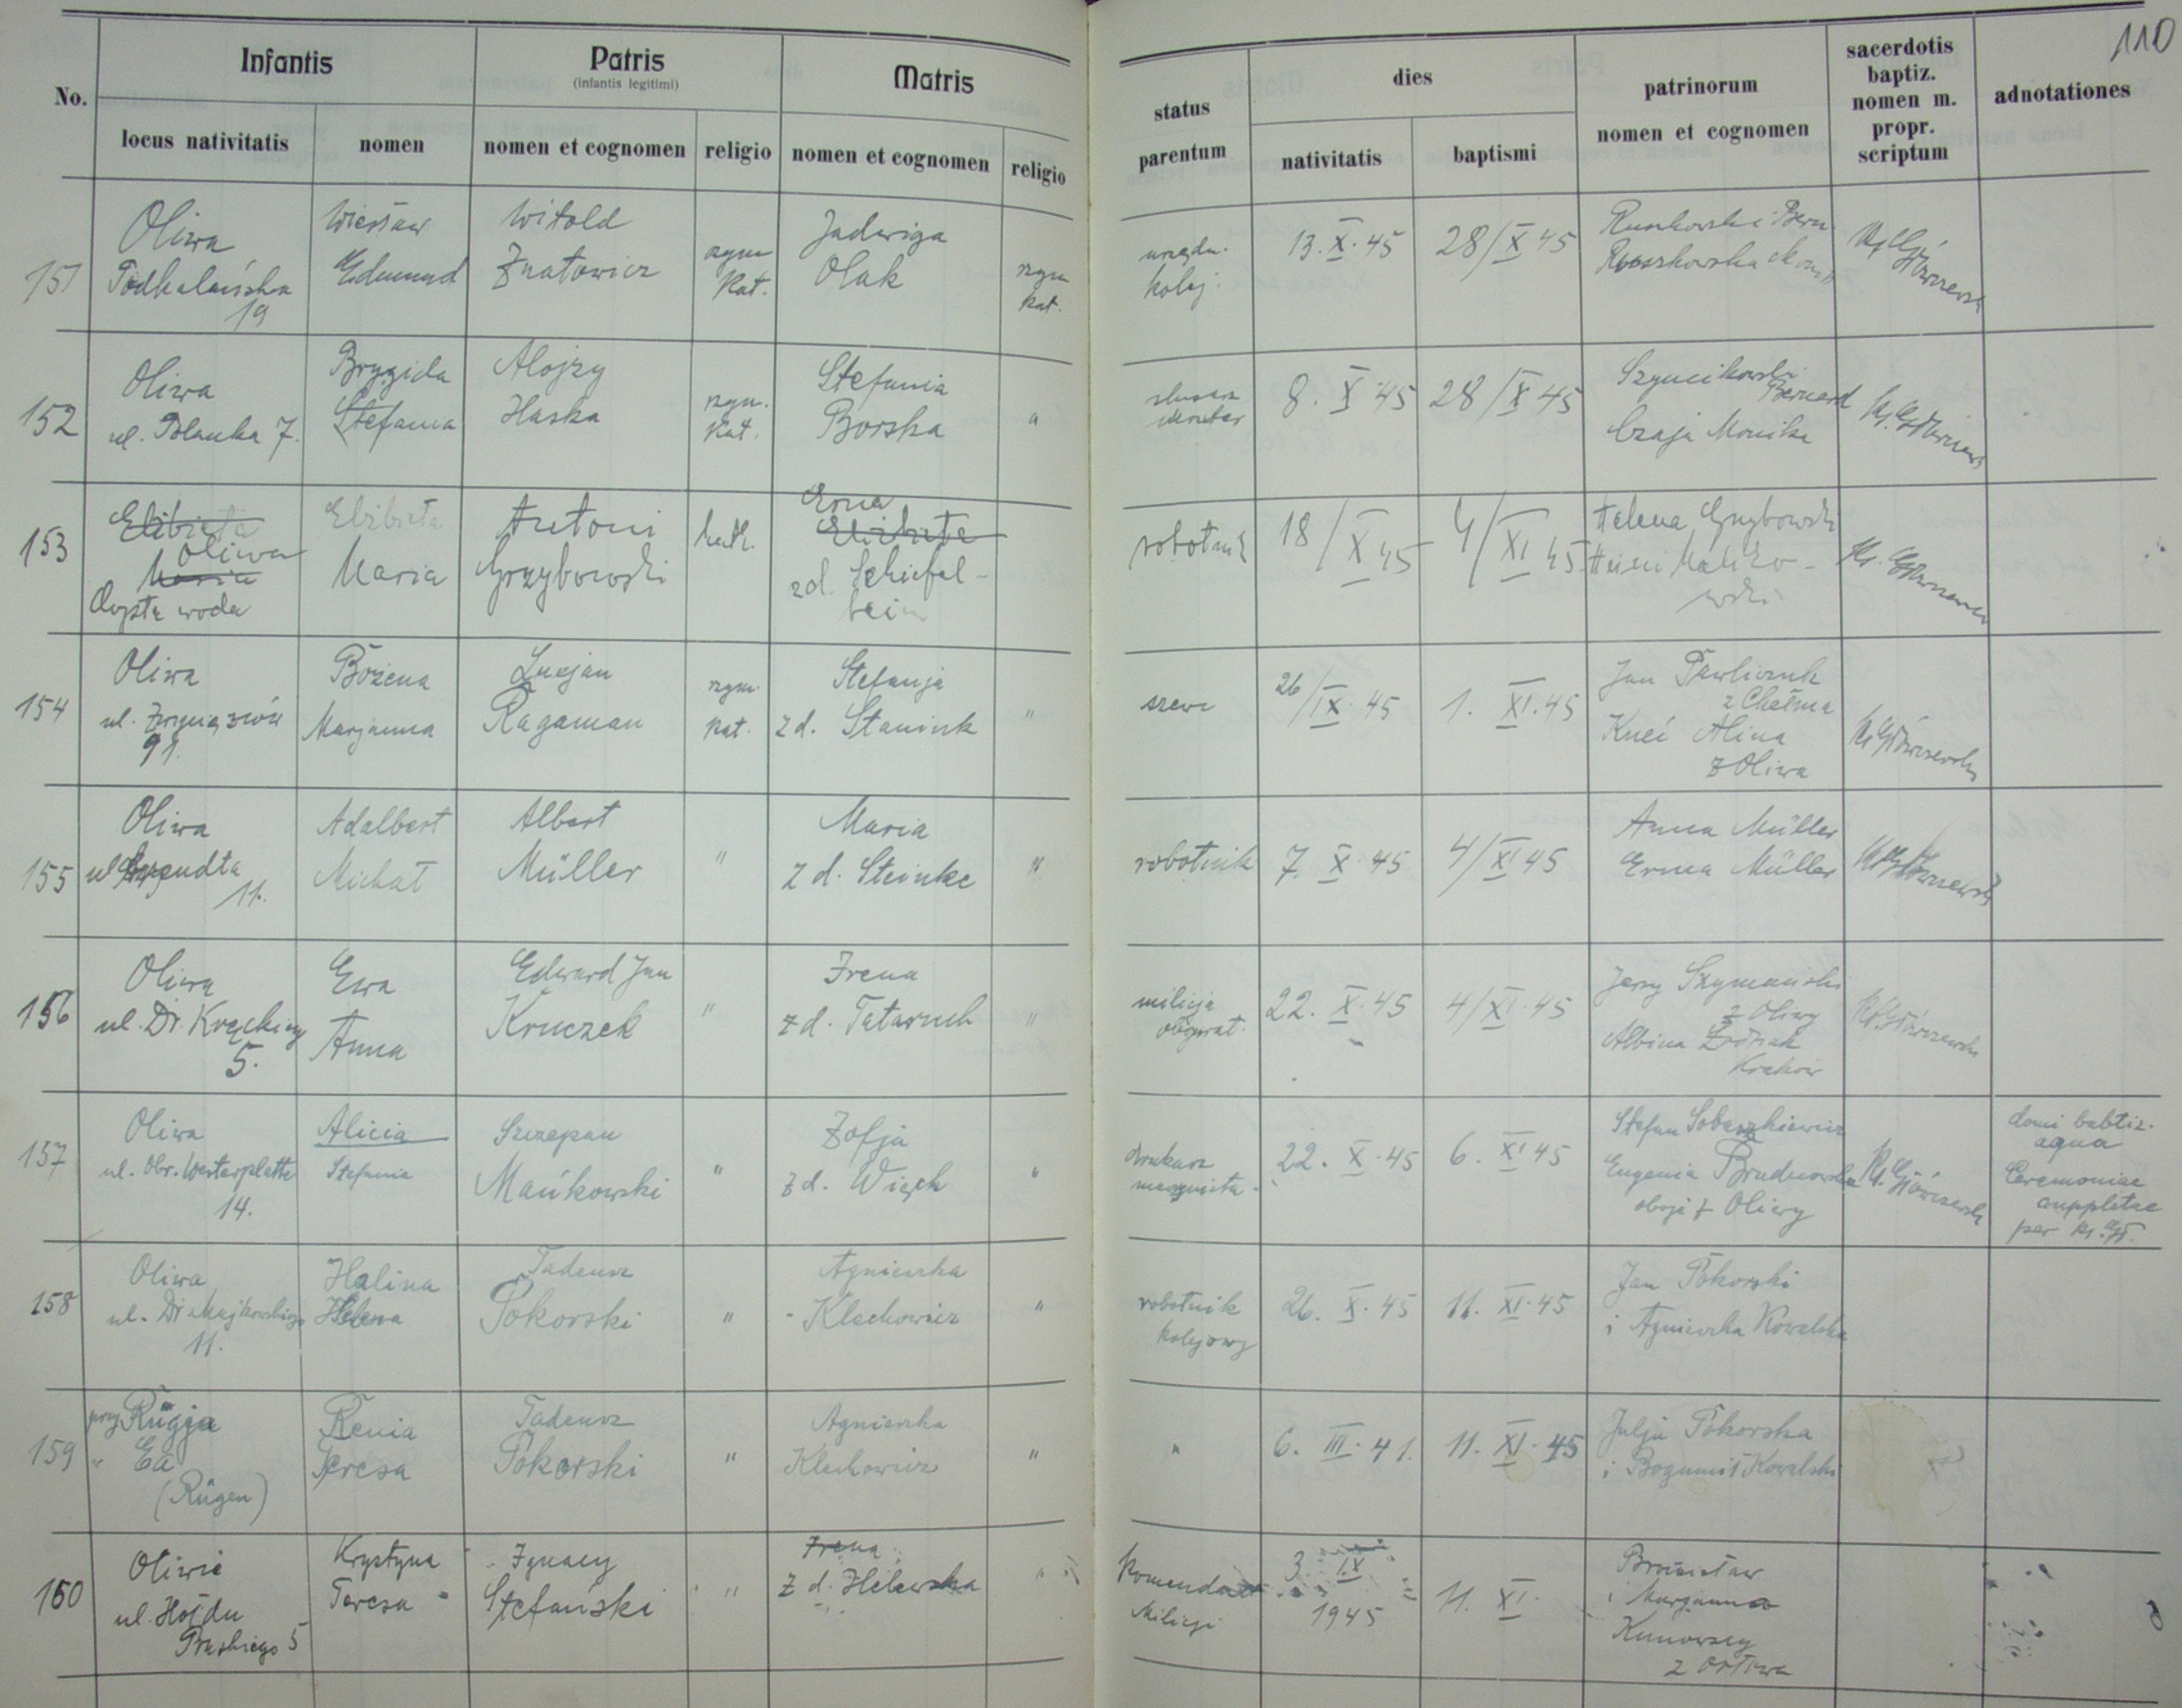 110
No.
Infantis
locus nativitatis
nomen
Patris
(infantis legitimi)
nomen et cognomen
religio
Matris
nomen et cognomen
religio
status
parentum
dies
nativitatis
baptismi
patrinorum
nomen et cognomen
sacerdotis
baptiz.
nomen m.
propr.
scriptum
adnotationes
151
Oliwa
Podhalańska
19
Wiesław
Edmund
Witold
Znatowicz
rzym
Kat.
Jadwiga
Olak
rzym
kat.
urzędn.
kolej.
13. X. 45
28/X 45
152
Oliwa
ul. Polanka 7.
Brygida
Stefania
Alojzy
Haska
rzym.
Kat.
Stefania
Borska
"
8. X 45
28/X 45
Bernard
Czaja Monika
153
Elżbieta
Oliwa
Maria
Czysta woda
Elżbieta
Maria
Antoni
Grzybowski
kath.
Erna
Elżbieta
zd. Schiefel-
bein
robotnik
18/X 45
4/XI 45
Helena Grzybowski
154
Oliwa
91.
Bożena
Marjanna
Lucjan
Ragaman
rzym
kat.
Stefanja
z d.
"
szewc
26/IX 45
1. XI. 45
Jan Pawliczuk
z Chełma
Alina
z Oliwa
155
Oliwa
11.
Adalbert
Michał
Albert
Müller
"
Maria
z d. Steinke
"
robotnik
7. X. 45
4/XI 45
Anna Müller
Erna Müller
156
Oliwa
ul. Dr
5.
Ewa
Anna
Edward Jan
Kruczek
"
Irena
z d. Tataruch
"
milicja
obywat.
22. X. 45
4/XI. 45
Jerzy Szymański
z Oliwy
Albina
Kraków
157
Oliwa
ul. Obr. Westerplatte
14.
Alicia
Stefania
Szczepan
Mańkowski
"
Zofja
z d. Więch
"
drukarz
maszynista
22. X. 45
6. XI 45
Stefan Sobaszkiewicz
Eugenia Brudnowska
oboje z Oliwy
domi babtiz.
aqua
Ceremoniae
suppletae
per
158
Oliwa
ul. Dr Majkowskiego
11.
Halina
Helena
Tadeusz
Pokorski
"
Agnieszka
- Klechowicz
"
robotnik
kolejowy
26. X. 45
11. XI. 45
Jan Pokorski
i Agnieszka Kowalska
159
przy Rügja
(Rügen)
Renia
Teresa
Tadeusz
Pokorski
"
Agnieszka
Klechowicz
"
"
6. III. 41.
11. XI. 45
Julja Pokorska
i Bogumił Kowalski
160
Oliwie
ul. Hołdu
Pruskiego 5
Krystyna
Teresa
Ignacy
Stefański
"
Irena
z d.
"
Komendant
Milicji
3. IX
1945
11. XI.
Bronisław
i Marjanna
Kunowscy
z Orłowa